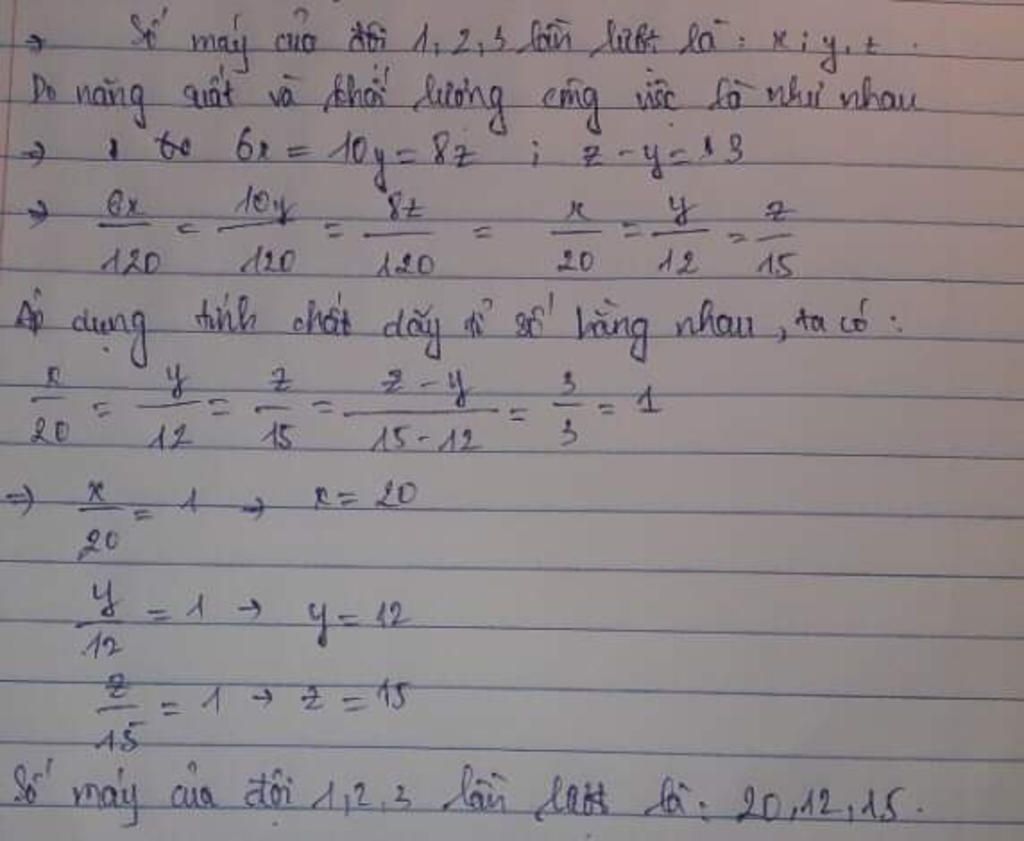 → Số máy của đội 1, 2, 3 lần lượt là : x ; y, z .
Do năng suất và khối lượng công việc là như nhau
→ 6x = 10y = 8z ; z - y = 3
→ 6x/120 = 10y/120 = 8z/120 = x/20 = y/12 = z/15
Áp dụng tính chất dãy tỉ số bằng nhau, ta có :
x/20 = y/12 = z/15 = z - y/15 - 12 = 3/3 = 1
⇒ x/20 = 1 → x = 20
y/12 = 1 → y = 12
z/15 = 1 → z = 15
Số máy của đội 1, 2, 3 lần lượt là : 20, 12, 15 .